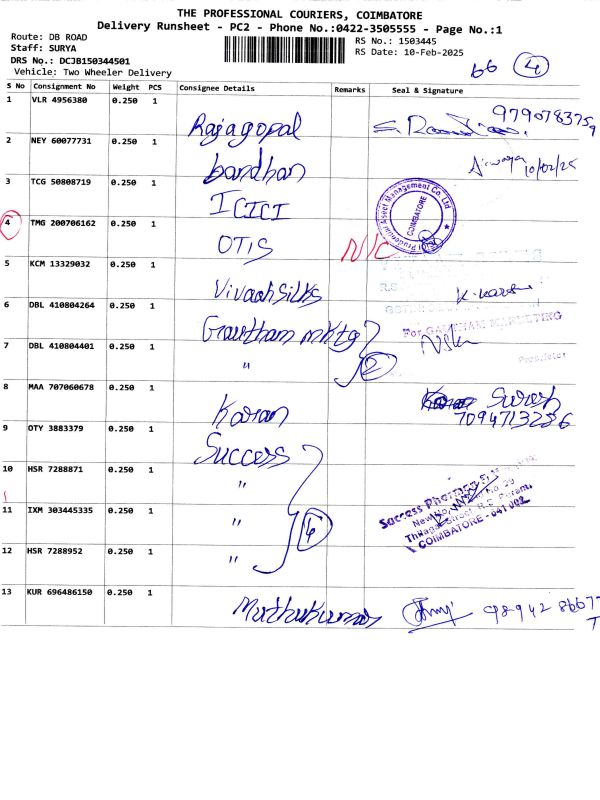 THE PROFESSIONAL COURIERS, COIMBATORE
Delivery Runsheet - PC2 - Phone No.:0422-3505555 - Page No.:1
Route: DB ROAD
Staff: SURYA
DRS No.: DCJB150344501
Vehicle: Two Wheeler Delivery
RS No.: 1503445
RS Date: 10-Feb-2025
66 4
S No Consignment No Weight PCS Consignee Details Remarks Seal & Signature
1 VLR 4956380 0.250 1 Rajagopal 9790783759
2 NEY 60077731 0.250 1 bardhan 10/02/25
3 TCG 50808719 0.250 1 ICICI Prudential Asset Management Co. Ltd COIMBATORE
4 TMG 200706162 0.250 1 OTIS N/C
5 KCM 13329032 0.250 1 Vivaah Silks
6 DBL 410804264 0.250 1 Gowtham mktg For GAUTHAM MARKETING
7 DBL 410804401 0.250 1 " 2 Proprietor
8 MAA 707060678 0.250 1 Karan Suresh
7094713286
9 OTY 3883379 0.250 1 Success
10 HSR 7288871 0.250 1 "
11 IXM 303445335 0.250 1 " 4
Success Pharma
New No. No 39
Thilagar Street R.S. Puram,
COIMBATORE - 641 002
12 HSR 7288952 0.250 1 "
13 KUR 696486150 0.250 1 Muthukumar